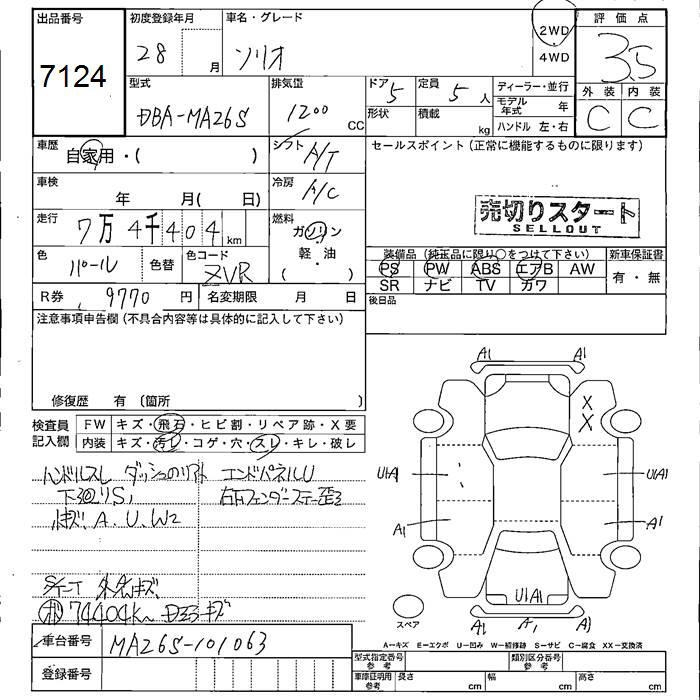 出品番号 7124
初度登録年月 28 月
車名・グレード ソリオ
2WD
4WD
評価点 3.5
型式 DBA-MA26S
排気量 1200 CC
ドア 5
形状
定員 5 人
積載 kg
ディーラー・並行
モデル年式 年
ハンドル 左・右
外装 内装
C C
車歴 自家用・( )
シフト A/T
セールスポイント(正常に機能するものに限ります)
車検 年 月( 日)
冷房 A/C
売切りスタート
SELLOUT
走行 7万4千404 km
燃料 ガソリン
軽・油
( ・ )
色 パール
色替
色コード ZVR
装備品(純正品に限り○をつけて下さい)
新車保証書
PS PW ABS エアB AW
有・無
SR ナビ TV カワ
R券 9770 円
名変期限 月 日
後日品
注意事項申告欄(不具合内容等は具体的に記入して下さい)
修復歴 有(箇所 )
検査員記入欄
FW キズ・飛石・ヒビ割・リペア跡・X要
内装 キズ・汚レ・コゲ・穴・スレ・キレ・破レ
ハンドルスレ
エンドパネルU
下廻りS
小キズ、A、U、W2
74404km
車台番号 MA26S-101063
登録番号
A1 A1
X
X
U1A1 U1A1
A1 A1
U1A1
A1 A1 A1
スペア
A-キズ E-エクボ U-凹み W-補修跡 S-サビ C-腐食 XX-交換済
型式指定番号 参考
類別区分番号 参考
車庫証明用 参考
長さ cm 幅 cm 高さ cm